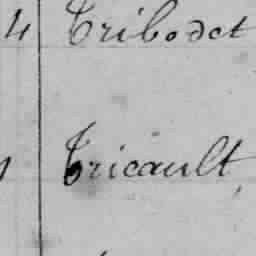 4 Tribodet
Tricault